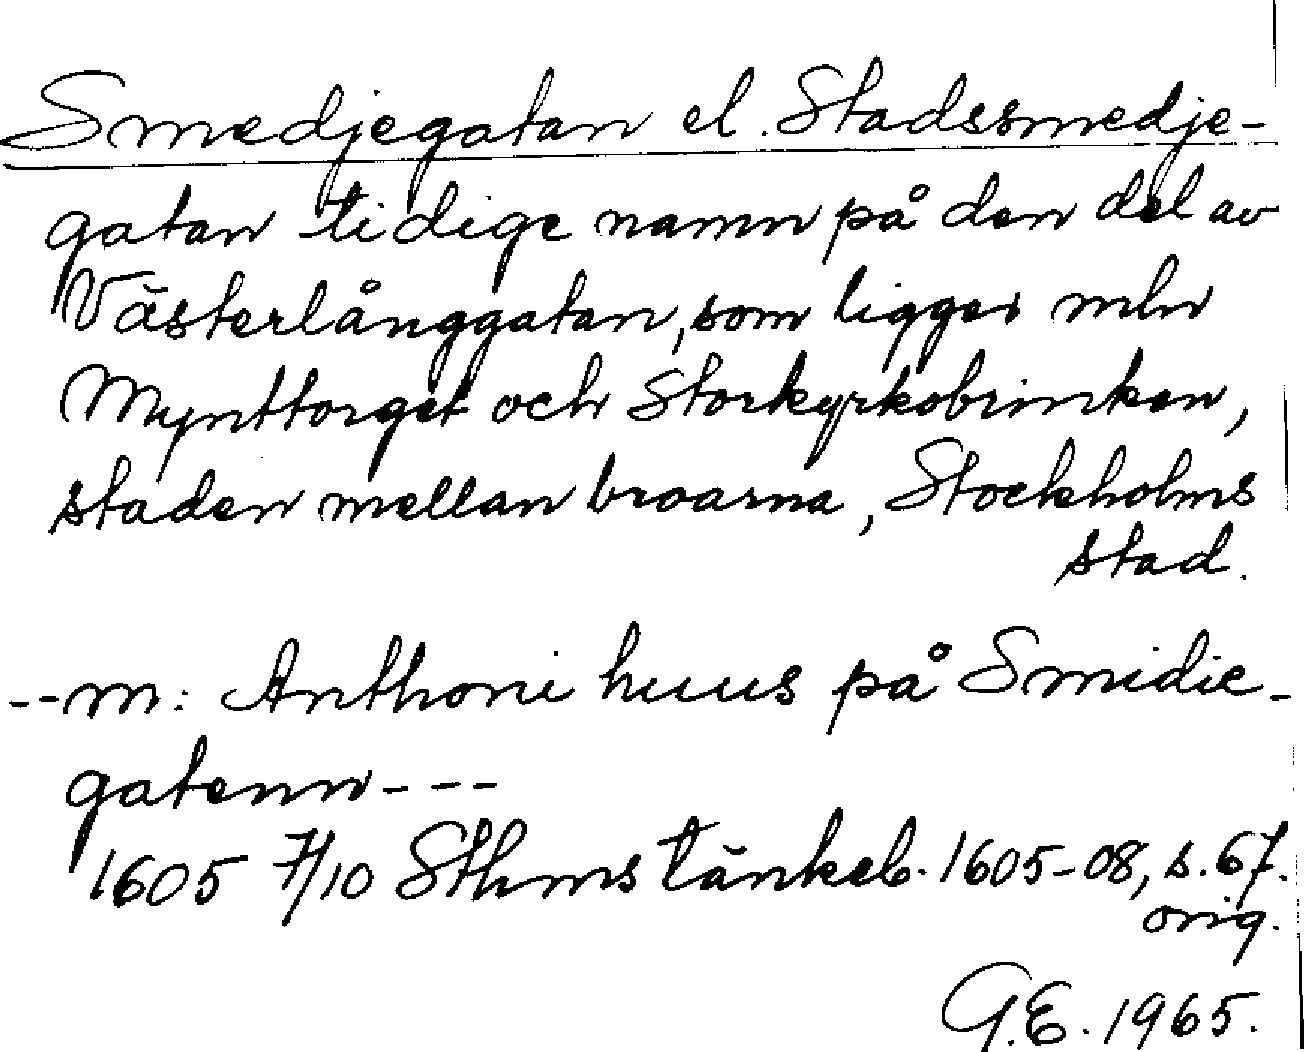 Smedjegatan el. Stadssmedje-
gatan tidige namn på den del av
Västerlånggatan, som ligger mln
Mynttorget och Storkyrkobrinken,
staden mellan broarna, Stockholms
stad.
--m: Anthoni huus på Smidie-
gatenn---
1605 7/10 Sthms tänkeb. 1605-08, s. 67.
orig.
G.E. 1965.